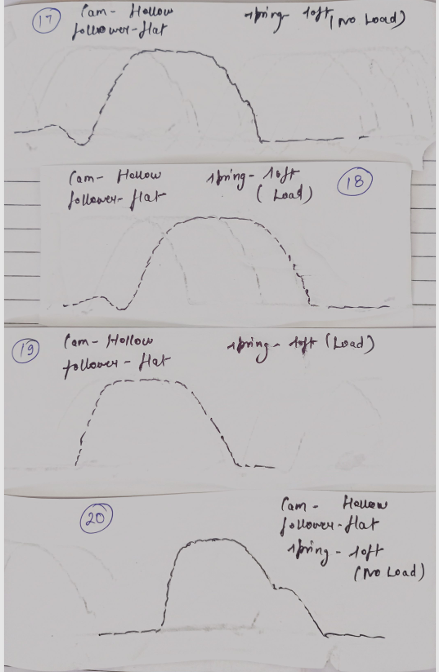 17
Cam - Hollow
follower - flat
spring - soft (No Load)
Cam - Hollow
follower - flat
spring - soft
(Load)
18
19
Cam - Hollow
follower - flat
spring - soft (Load)
20
Cam - Hollow
follower - flat
spring - soft
(No Load)